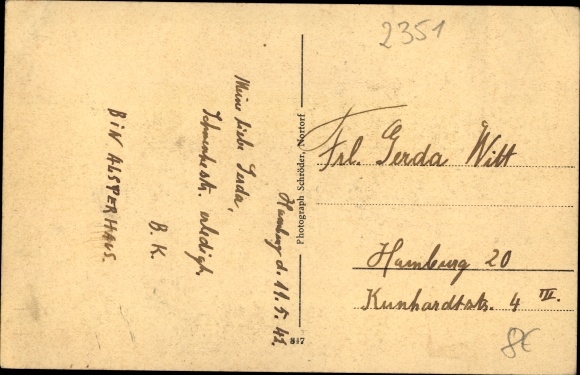 2351
Hamburg d. 19.5.42.
Meine liebe Gerda,
erledigt.
B. K.
BIN ALSTERHAUS.
Photograph Schröder, Nortorf
847
Frl. Gerda Witt
Hamburg 20
Kunhardtstr. 4 III.
8€